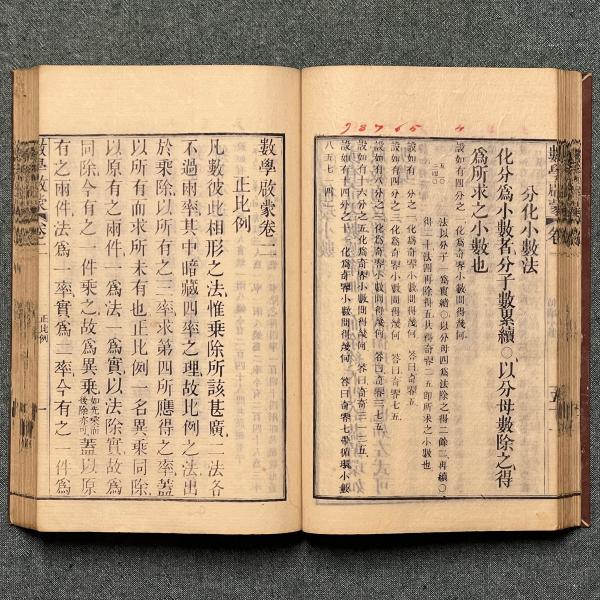 分化小數法
化分爲小數者分子數累續〇以分母數除之得
爲所求之小數也
設如有四分之 化爲奇零小數問得幾何
法以分子一爲實續〇以分母四爲法除之得二餘二再續〇
得二十法四再除得五共得奇零二五即所求之小數也
設如有 分之 化爲奇零小數問得幾何 答曰奇零
設如有四分之三化爲奇零小數問得幾何 答曰奇零七五
設如有八分之三化爲奇零小數問得幾何 答曰奇零三七五
設如有十六分之 化爲奇零小數問得幾何 答曰奇零
設如有 分之 化爲奇零小數問得幾何 答曰奇零 七 帶循環小數
八五七
數學啟蒙 卷一
98765 4
數學啟蒙卷二
正比例
凡數彼此相形之法惟乘除所該甚廣二法各
不過兩率其中暗藏四率之理故比例之法出
於乘除以所有之三率求第四所應得之率蓋
以所有而求所未有也正比例一名異乘同除
以原有之兩件一爲法一爲實以法除實故爲
同除今有之一件乘之故爲異乘如先乘而後除亦可蓋以原
有之兩件法爲一率實爲二率今有之一件爲
數學啟蒙 卷二
正比例
一